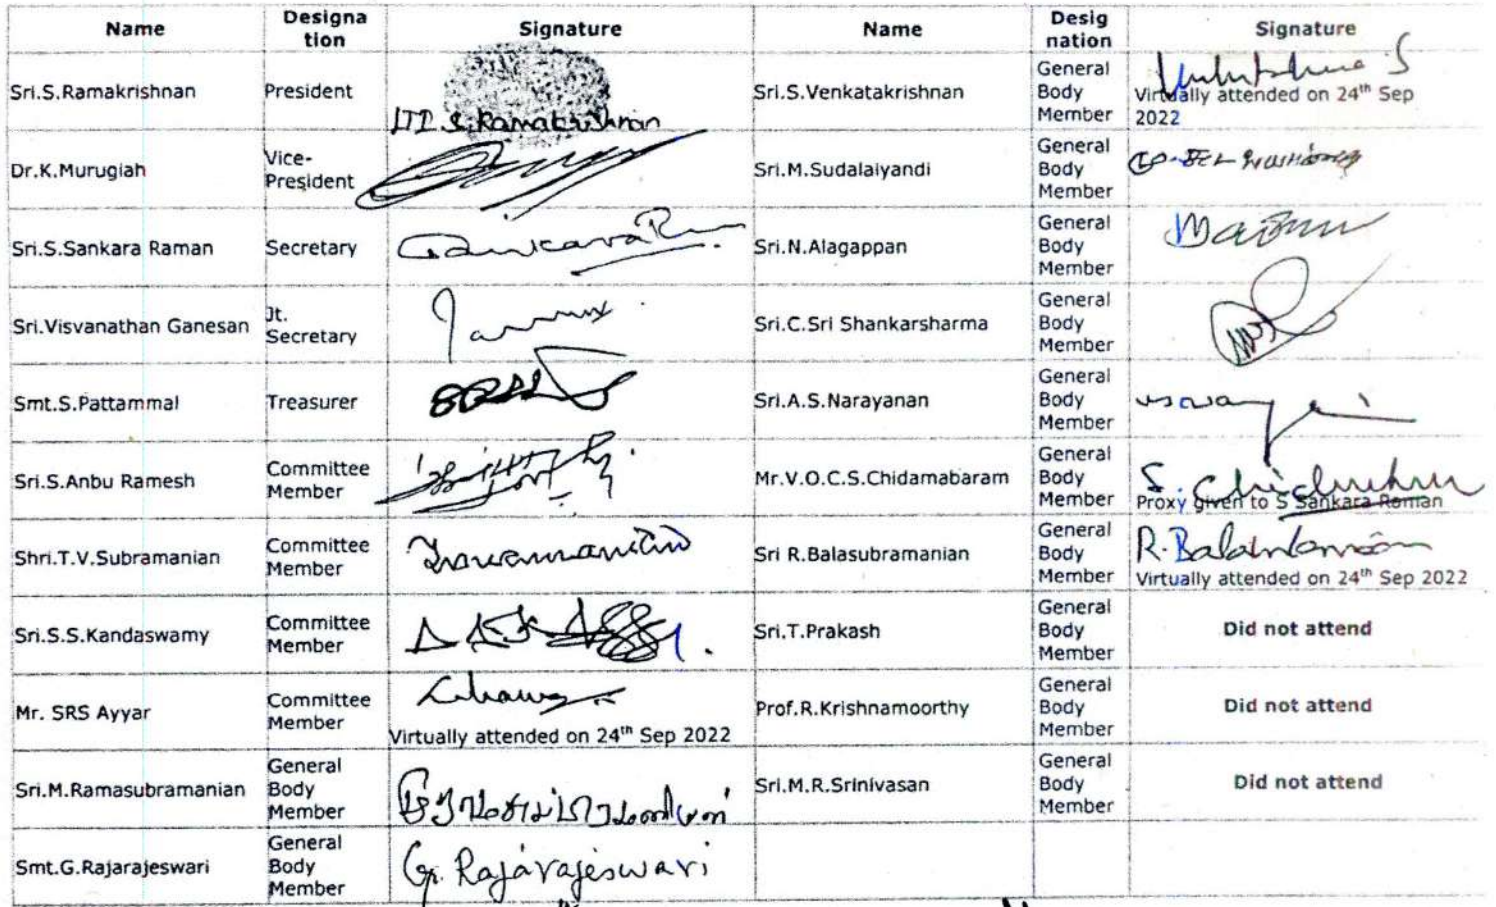 Name Designa Signature Name Desig Signature
tion nation
Sri.S.Ramakrishnan President LTI S. Ramakrishnan Sri.S.Venkatakrishnan General
Body
Member
Virtually attended on 24th Sep
2022
Dr.K.Murugiah Vice-
President
Sri.M.Sudalaiyandi General
Body
Member
Sri.S.Sankara Raman Secretary
Sri.N.Alagappan General
Body
Member
Sri.Visvanathan Ganesan Jt.
Secretary
Sri.C.Sri Shankarsharma General
Body
Member
Smt.S.Pattammal Treasurer
Sri.A.S.Narayanan General
Body
Member
Sri.S.Anbu Ramesh Committee
Member
Mr.V.O.C.S.Chidamabaram General
Body
Member
Proxy given to S Sankara Raman
Shri.T.V.Subramanian Committee
Member
Sri R.Balasubramanian General
Body
Member
Virtually attended on 24th Sep 2022
Sri.S.S.Kandaswamy Committee
Member
Sri.T.Prakash General
Body
Member
Did not attend
Mr. SRS Ayyar Committee
Member
Virtually attended on 24th Sep 2022
Prof.R.Krishnamoorthy General
Body
Member
Did not attend
Sri.M.Ramasubramanian General
Body
Member
Sri.M.R.Srinivasan General
Body
Member
Did not attend
Smt.G.Rajarajeswari General
Body
Member
G. Rajarajeswari